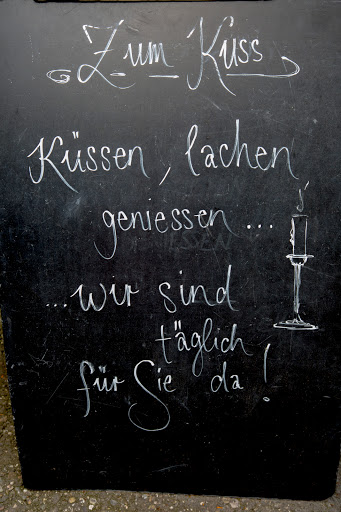 Zum Kuss
Küssen, lachen
geniessen...
...wir sind
täglich
für Sie da!